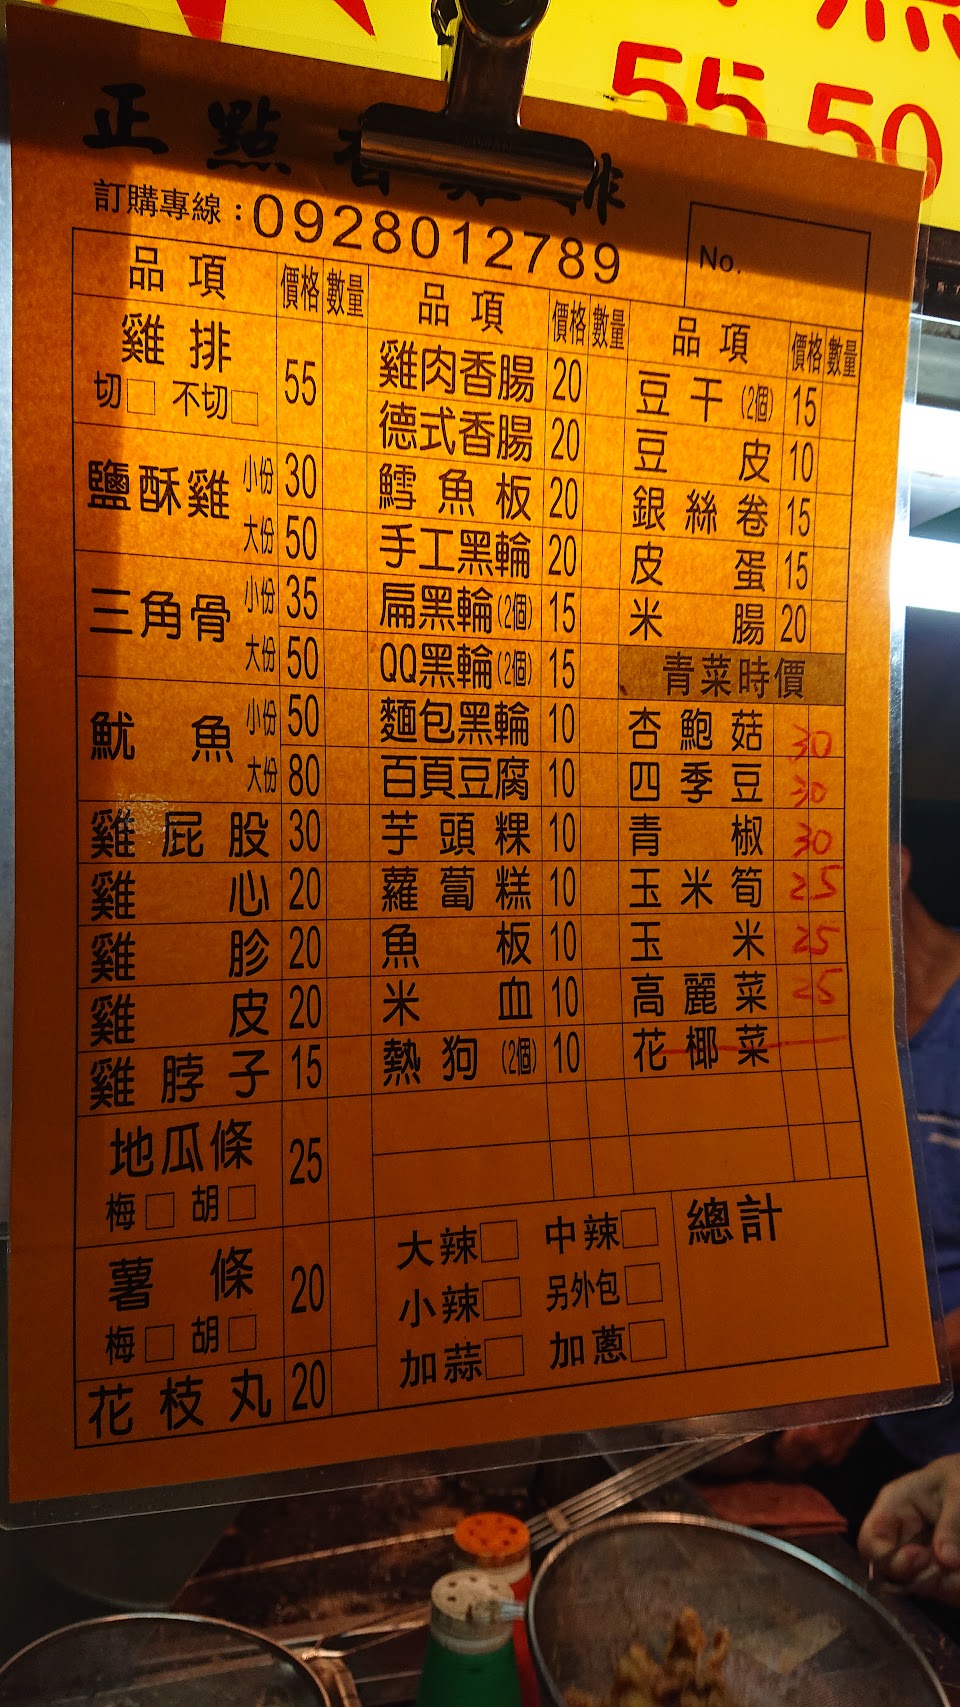 55 50
正點香雞排
訂購專線:0928012789
No.
品項 價格 數量
雞排 55
切□ 不切□
鹽酥雞 小份 30
大份 50
三角骨 小份 35
大份 50
魷魚 小份 50
大份 80
雞屁股 30
雞心 20
雞胗 20
雞皮 20
雞脖子 15
地瓜條 25
梅□ 胡□
薯條 20
梅□ 胡□
花枝丸 20
品項 價格 數量
雞肉香腸 20
德式香腸 20
鱈魚板 20
手工黑輪 20
扁黑輪(2個) 15
QQ黑輪(2個) 15
麵包黑輪 10
百頁豆腐 10
芋頭粿 10
蘿蔔糕 10
魚板 10
米血 10
熱狗(2個) 10
品項 價格 數量
豆干(2個) 15
豆皮 10
銀絲卷 15
皮蛋 15
米腸 20
青菜時價
杏鮑菇 30
四季豆 30
青椒 30
玉米筍 25
玉米 25
高麗菜 25
花椰菜
大辣□ 中辣□
小辣□ 另外包□
加蒜□ 加蔥□
總計